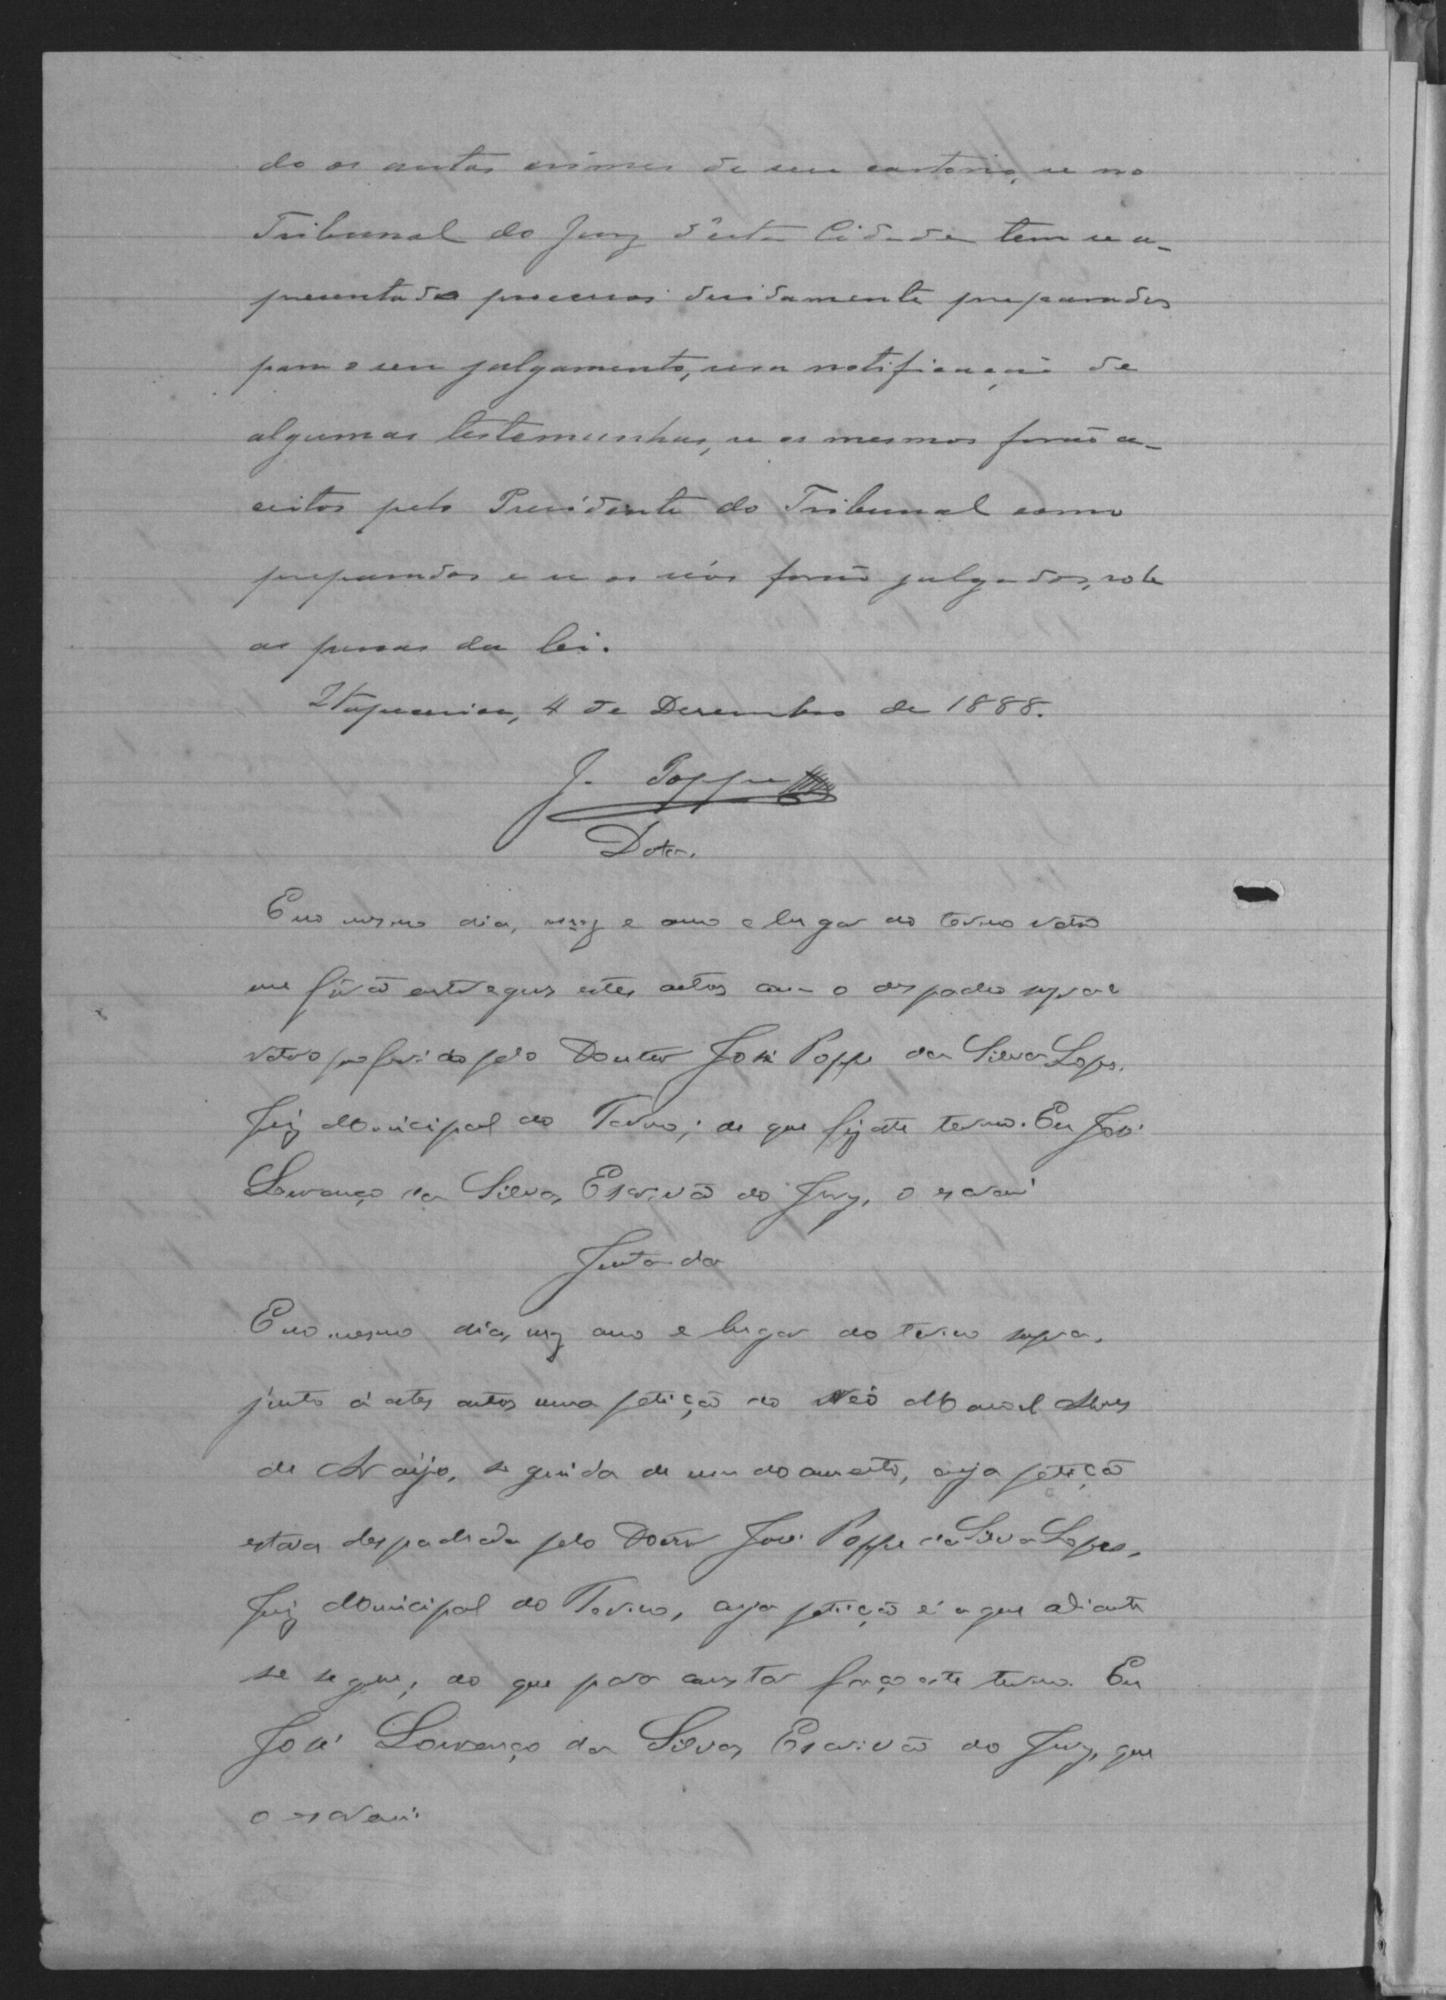 do os autos crimes de seu cartorio, se no
Tribunal do Jury d'esta Cidade tem se a-
presentado processos devidamente preparados
para o seu julgamento, sem notificação de
algumas testemunhas, se os mesmos forão a-
ceitos pelo Presidente do Tribunal como
preparados e se os réos forão julgados, sob
as penas da lei.
Itapecerica, 4 de Dezembro de 1888.
J. Poppe
Data.
E no mesmo dia, mez e anno e lugar do termo retro
me fôrão entregues estes autos com o despacho supra e
retro proferido pelo Doutor José Poppe da Silva Lopes,
Juiz Municipal do Termo; de que fiz este termo. Eu José
Lourenço da Silva, Escrivão do Jury, o escrevi
Juntada
E no mesmo dia, mez anno e lugar do termo supra,
junto á estes autos uma petição do Réo Manoel Alves
de Araujo, seguida de um documento, cuja petição
estava despachada pelo Doutor José Poppe da Silva Lopes,
Juiz Municipal do Termo, cuja petição é a que adiante
se segue; do que para constar faço este termo. Eu
José Lourenço da Silva, Escrivão do Jury, que
o escrevi.